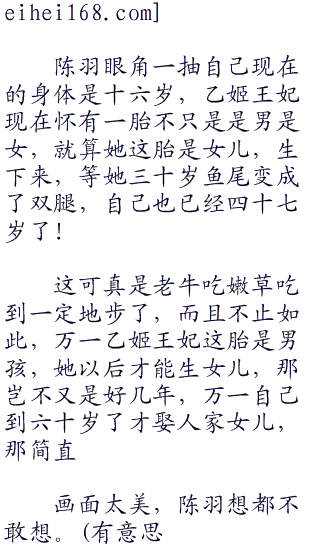 eihei168.com]
陈羽眼角一抽自己现在
的身体是十六岁，乙姬王妃
现在怀有一胎不只是是男是
女，就算她这胎是女儿，生
下来，等她三十岁鱼尾变成
了双腿，自己也已经四十七
岁了！
这可真是老牛吃嫩草吃
到一定地步了，而且不止如
此，万一乙姬王妃这胎是男
孩，她以后才能生女儿，那
岂不又是好几年，万一自己
到六十岁了才娶人家女儿，
那简直
画面太美，陈羽想都不
敢想。(有意思